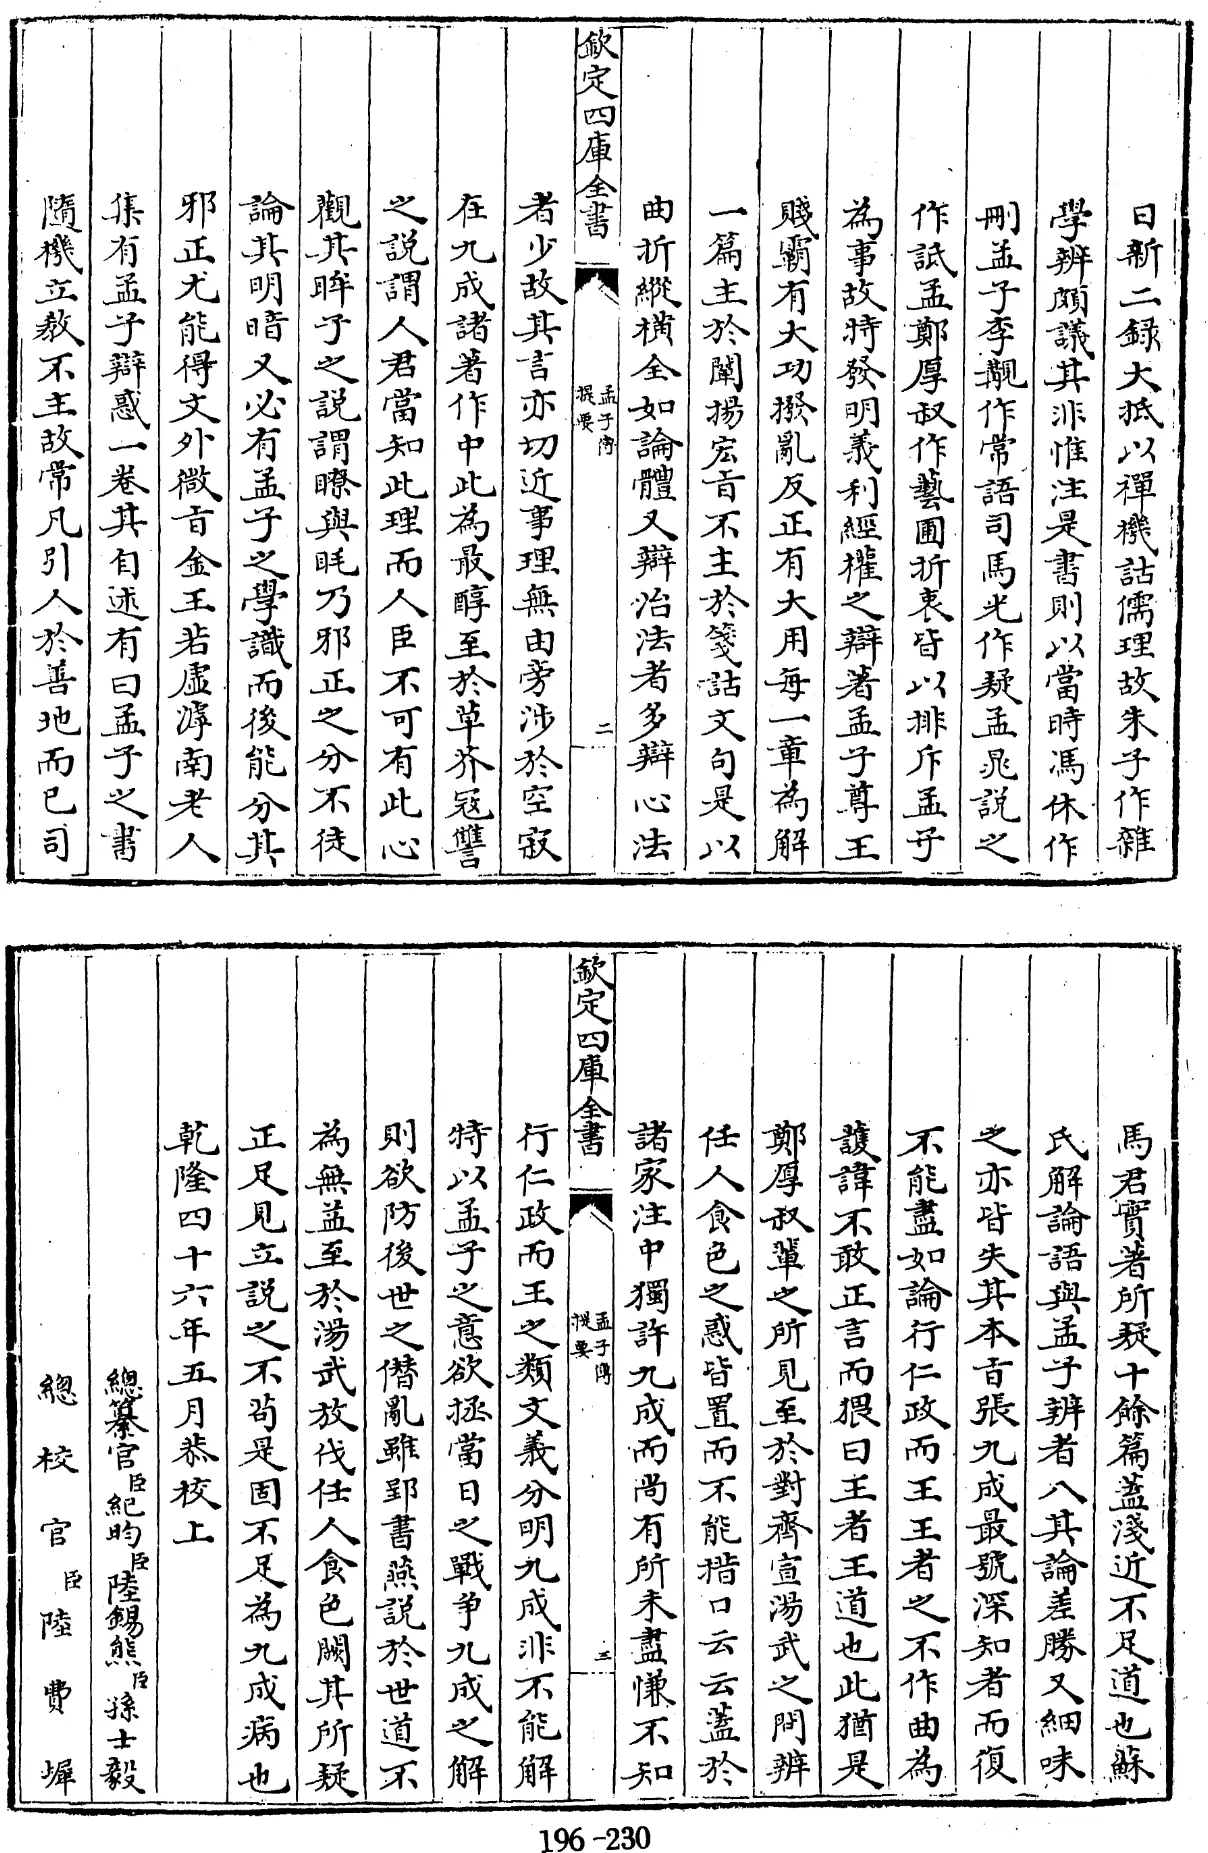 日新二録大抵以禪機詁儒理故朱子作雜
學辨頗議其非惟注是書則以當時馮休作
刪孟子李覯作常語司馬光作疑孟晁説之
作詆孟鄭厚叔作藝圃折衷皆以排斥孟子
為事故特發明義利經權之辯著孟子尊王
賤霸有大功撥亂反正有大用每一章為解
一篇主於闡揚宏旨不主於箋詁文句是以
曲折縱横全如論體又辯治法者多辯心法
欽定四庫全書
孟子傳
提要
二
者少故其言亦切近事理無由旁涉於空寂
在九成諸著作中此為最醇至於草芥寇讐
之説謂人君當知此理而人臣不可有此心
觀其眸子之説謂瞭與眊乃邪正之分不徒
論其明暗又必有孟子之學識而後能分其
邪正尤能得文外微旨金王若虚滹南老人
集有孟子辯惑一卷其自述有曰孟子之書
隨機立教不主故常凡引人於善地而已司
馬君實著所疑十餘篇蓋淺近不足道也蘇
氏解論語與孟子辨者八其論差勝又細味
之亦皆失其本旨張九成最號深知者而復
不能盡如論行仁政而王王者之不作曲為
護諱不敢正言而猥曰王者王道也此猶是
鄭厚叔輩之所見至於對齊宣湯武之問辨
任人食色之惑皆置而不能措口云云蓋於
諸家注中獨許九成而尚有所未盡慊不知
欽定四庫全書
孟子傳
提要
三
行仁政而王之類文義分明九成非不能解
特以孟子之意欲拯當日之戰争九成之解
則欲防後世之僭亂雖郢書燕説於世道不
為無益至於湯武放伐任人食色闕其所疑
正足見立説之不苟是固不足為九成病也
乾隆四十六年五月恭校上
總纂官臣紀昀臣陸錫熊臣孫士毅
總校官臣陸費墀
196-230